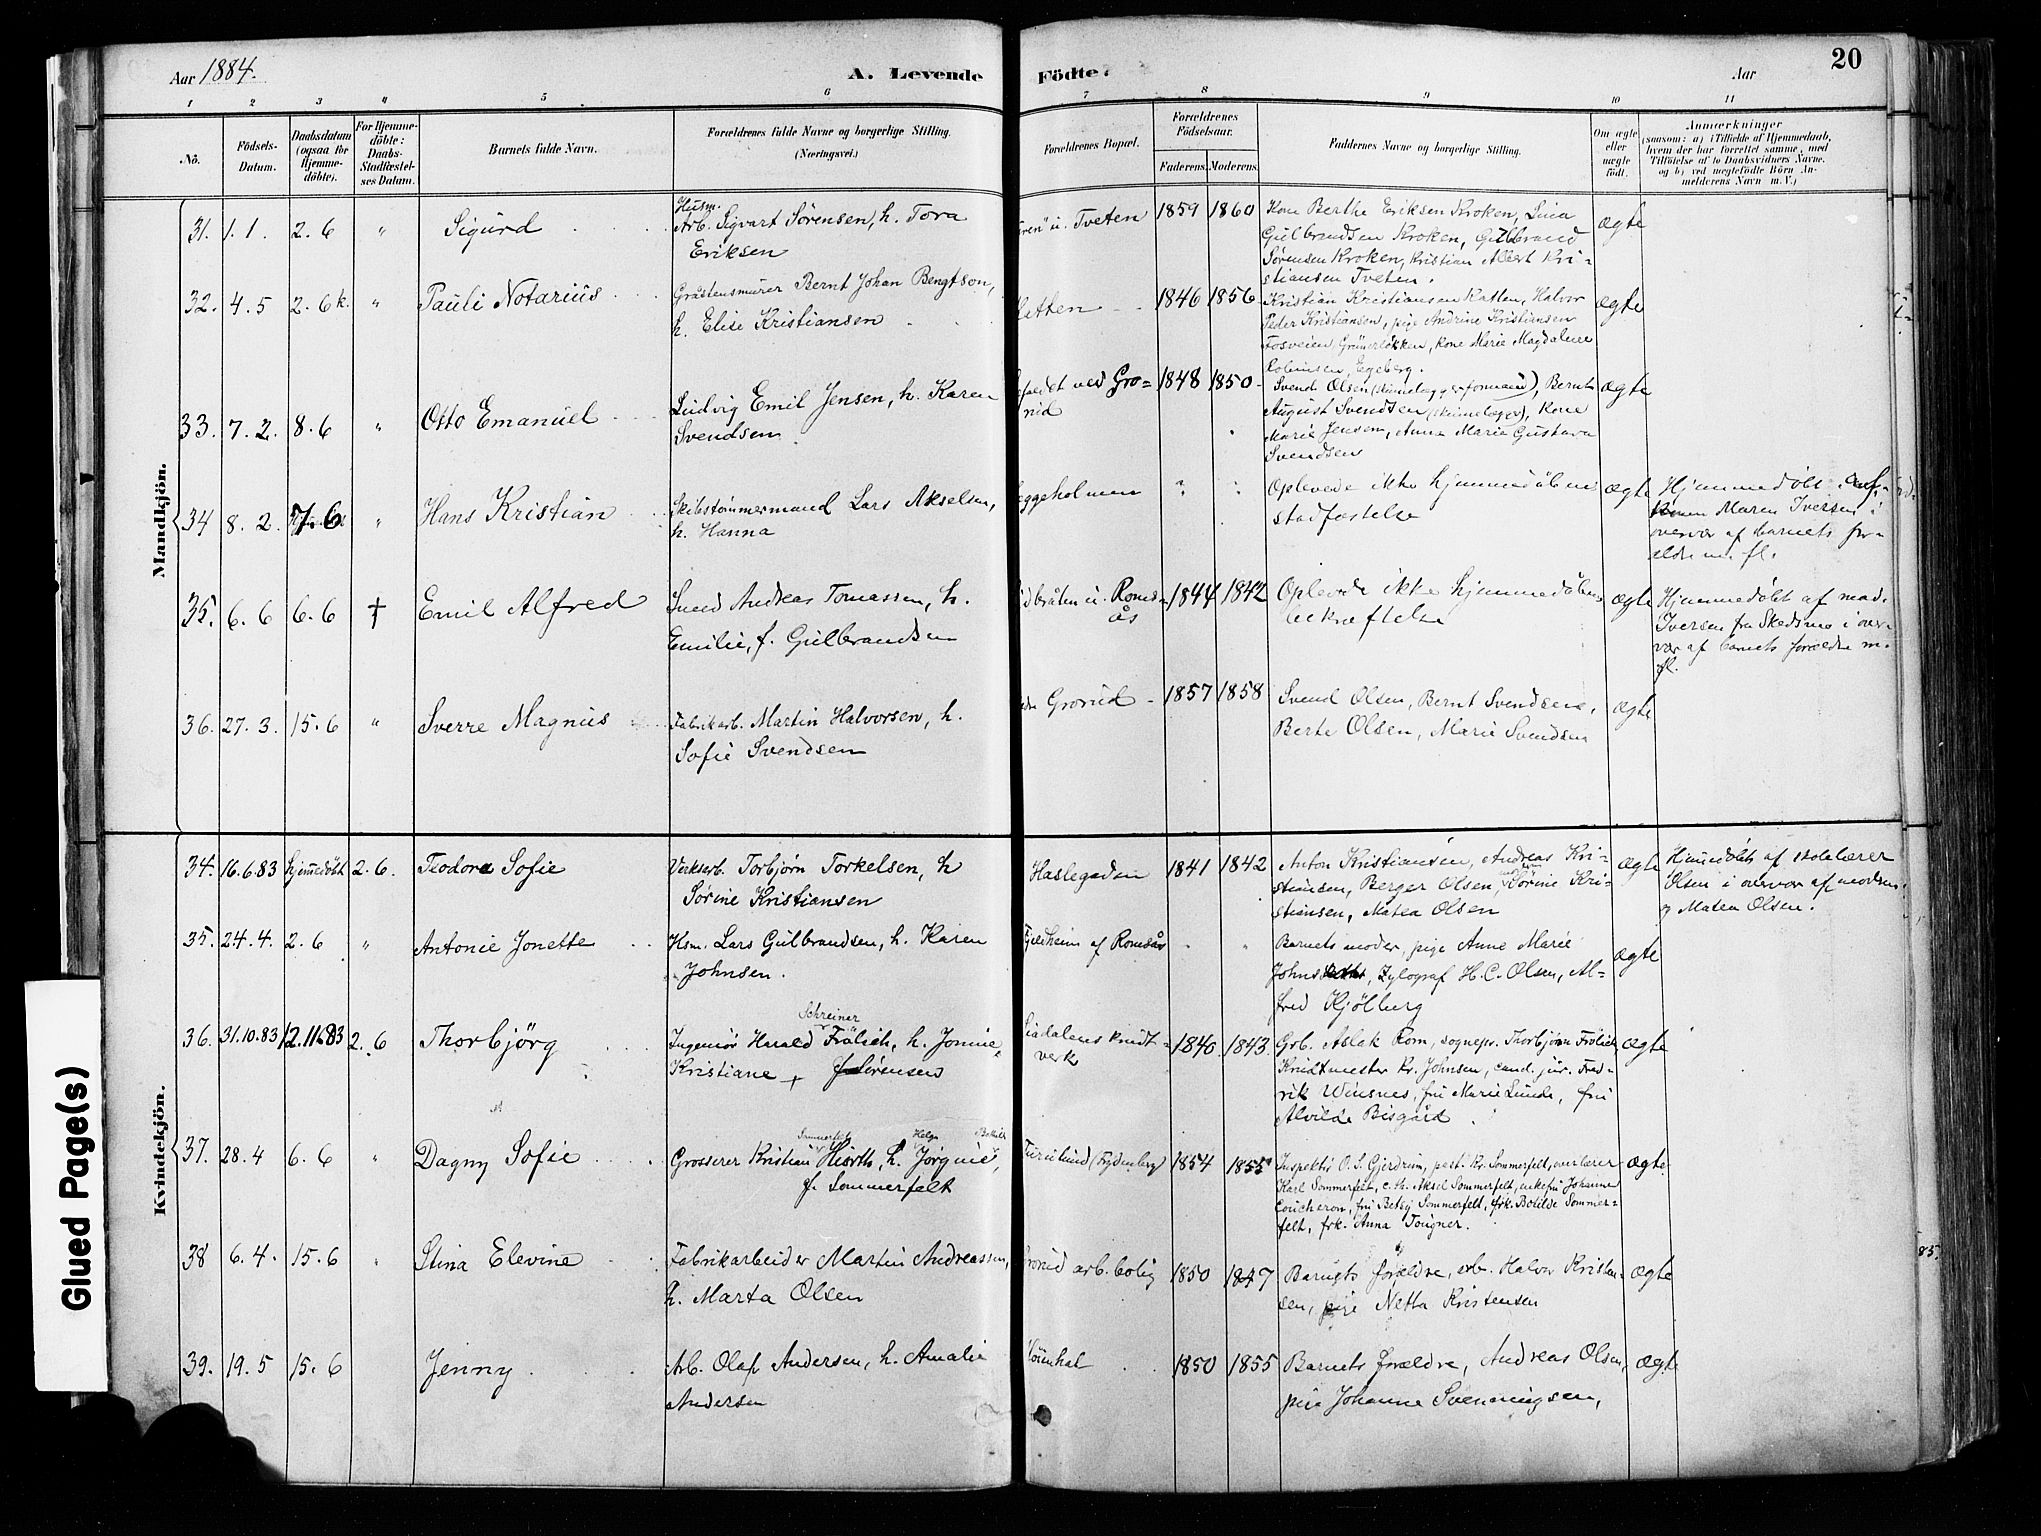 Aar 1884.
A. Levende
Födte.
Aar
20
1 2 3 4 5 6 7 8 9 10 11
No.
Födsels-Datum.
Daabsdatum (ogsaa for Hjemme-döbte).
For Hjemme-döbte: Daabs-Stadfæstel-ses Datum.
Barnets fulde Navn.
Forældrenes fulde Navne og borgerlige Stilling.
(Næringsvei.)
Forældrenes Bopæl.
Forældrenes Födselsaar.
Faderens. Moderens.
Faddernes Navne og borgerlige Stilling.
Om ægte eller uægte födt.
Anmærkninger
(saasom: a) i Tilfælde af Hjemmedaab,
hvem der har forrettet samme, med
Tilföielse af to Daabsvidners Navne,
og b) ved uægtefödte Börn An-
melderens Navn m. V.)
Mandkjön.
31. 1.1. 2.6 " Sigurd
Husm.
Arb. Sigvart Sørensen, h. Tora
Eriksen
u. Tveten 1859 1860
Kone Berthe Eriksen Kroken, Lina
Gulbrandsen Kroken, Gulbrand
Sørensen Kroken, Kristian Albert Kri-
stiansen Tveten.
ægte
32. 4.5 2.6 k. " Pauli Notarius
Gråstensmurer Bernt Johan Bengtson,
h. Elise Kristiansen
1846 1856
Kristian Kristiansen Katten, Halvor
Peder Kristiansen, pige Andrine Kristiansen
Fosveien, Grünerløkken, Kone Marie Magdalene
Egeberg.
ægte
33. 7.2. 8.6 " Otto Emanuel
Ludvig Emil Jensen, h. Karen
Svendsen
ved Gro-
rud
1848 1850
Svend Olsen, Bernt
August Svendsen, Kone
Marie Jensen, Anna Marie Gustava
Svendsen
ægte
34 8.2. 7.6 " Hans Kristian
Skibstømmermand Lars Akselsen,
h. Hanna
Oplevede ikke hjemmedåbens
stadfæstelse
ægte
Hjemmedøbt af
Maren Iversen i
overvær af barnets for-
ældre m. fl.
35. 6.6 6.6 † Emil Alfred
Svend Andreas Tomassen, h.
Emilie, f. Gulbrandsen
u. Roms-
ås
1844 1842
Oplevede ikke hjemmedåbens
bekræftelse
ægte
Hjemmedøbt af mad.
Iversen fra Skedsmo i over-
vær af barnets forældre m.
fl.
36. 27.3. 15.6 " Sverre Magnus
Fabrikarb. Martin Halvorsen, h.
Sofie Svendsen
Grorud 1857 1858
Svend Olsen, Bernt Svendsen,
Berte Olsen, Marie Svendsen
ægte
Kvindekjön.
34. 16.6.83 hjemmedøbt 2.6. Teodora Sofie
Verksarb. Torbjørn Torkelsen, h
Sørine Kristiansen
Haslegaden 1841 1842
Anton Kristiansen, Andreas Kri-
stiansen, Berger Olsen, Sørine Kri-
stiansen, Matea Olsen
ægte
Hjemmedøbt af skolelærer
Olsen i overvær af moderen
og Matea Olsen.
35. 24.4. 2.6 " Antonie Jonette
Hsm. Lars Gulbrandsen, h. Karen
Johnsen.
Fjeldheim af Romsås " "
Barnets moder, pige Anne Marie
Xylograf H.C. Olsen, Al-
fred Kjölberg
ægte
36. 31.10.83 12.11.83 2.6 Thorbjörg
Schreiner
Ingeniör Harald Frölich, h. Jonnie
Kristiane f. Sørensen
krudt-
verk
1840 1843.
Grb. Aslak Rom, sognepr. Thorbjörn Frölich,
Krudtmester Kr. Johnsen, cand. jur. Fred-
rik Winsnes, fru Marie Lunde, fru
Alvilde Bisgård.
ægte
37. 28.4 6.6 " Dagny Sofie
Sommerfelt Helga Bothilde
Grosserer Kristian Hiorth, h. Jørgine,
f. Sommerfelt
(Frydenberg) 1854 1855
Inspektör O.S. Gjerdrum, past. Kr. Sommerfelt, overlærer
Karl Sommerfelt, c. th. Aksel Sommerfelt, enkefru Johanne
Coucheron, fru Betsy Sommerfelt, frk. Botilde Sommer-
felt, frk. Anna Tougner.
ægte
38 6.4. 15.6 " Stina Elevine
Fabrikarbeider Martin Andreassen,
h. Marta Olsen
Grorud arb. bolig 1850 1847
Barnets forældre, arb. Halvor Kristen-
sen, pige Netta Kristensen
ægte
39. 19.5 15.6 Jenny
Arb. Olaf Andersen, h. Amalie
Andersen
1850 1855
Barnets forældre, Andreas Olsen,
pige Johanne Svenningsen,
ægte
85.
Glued Page(s)